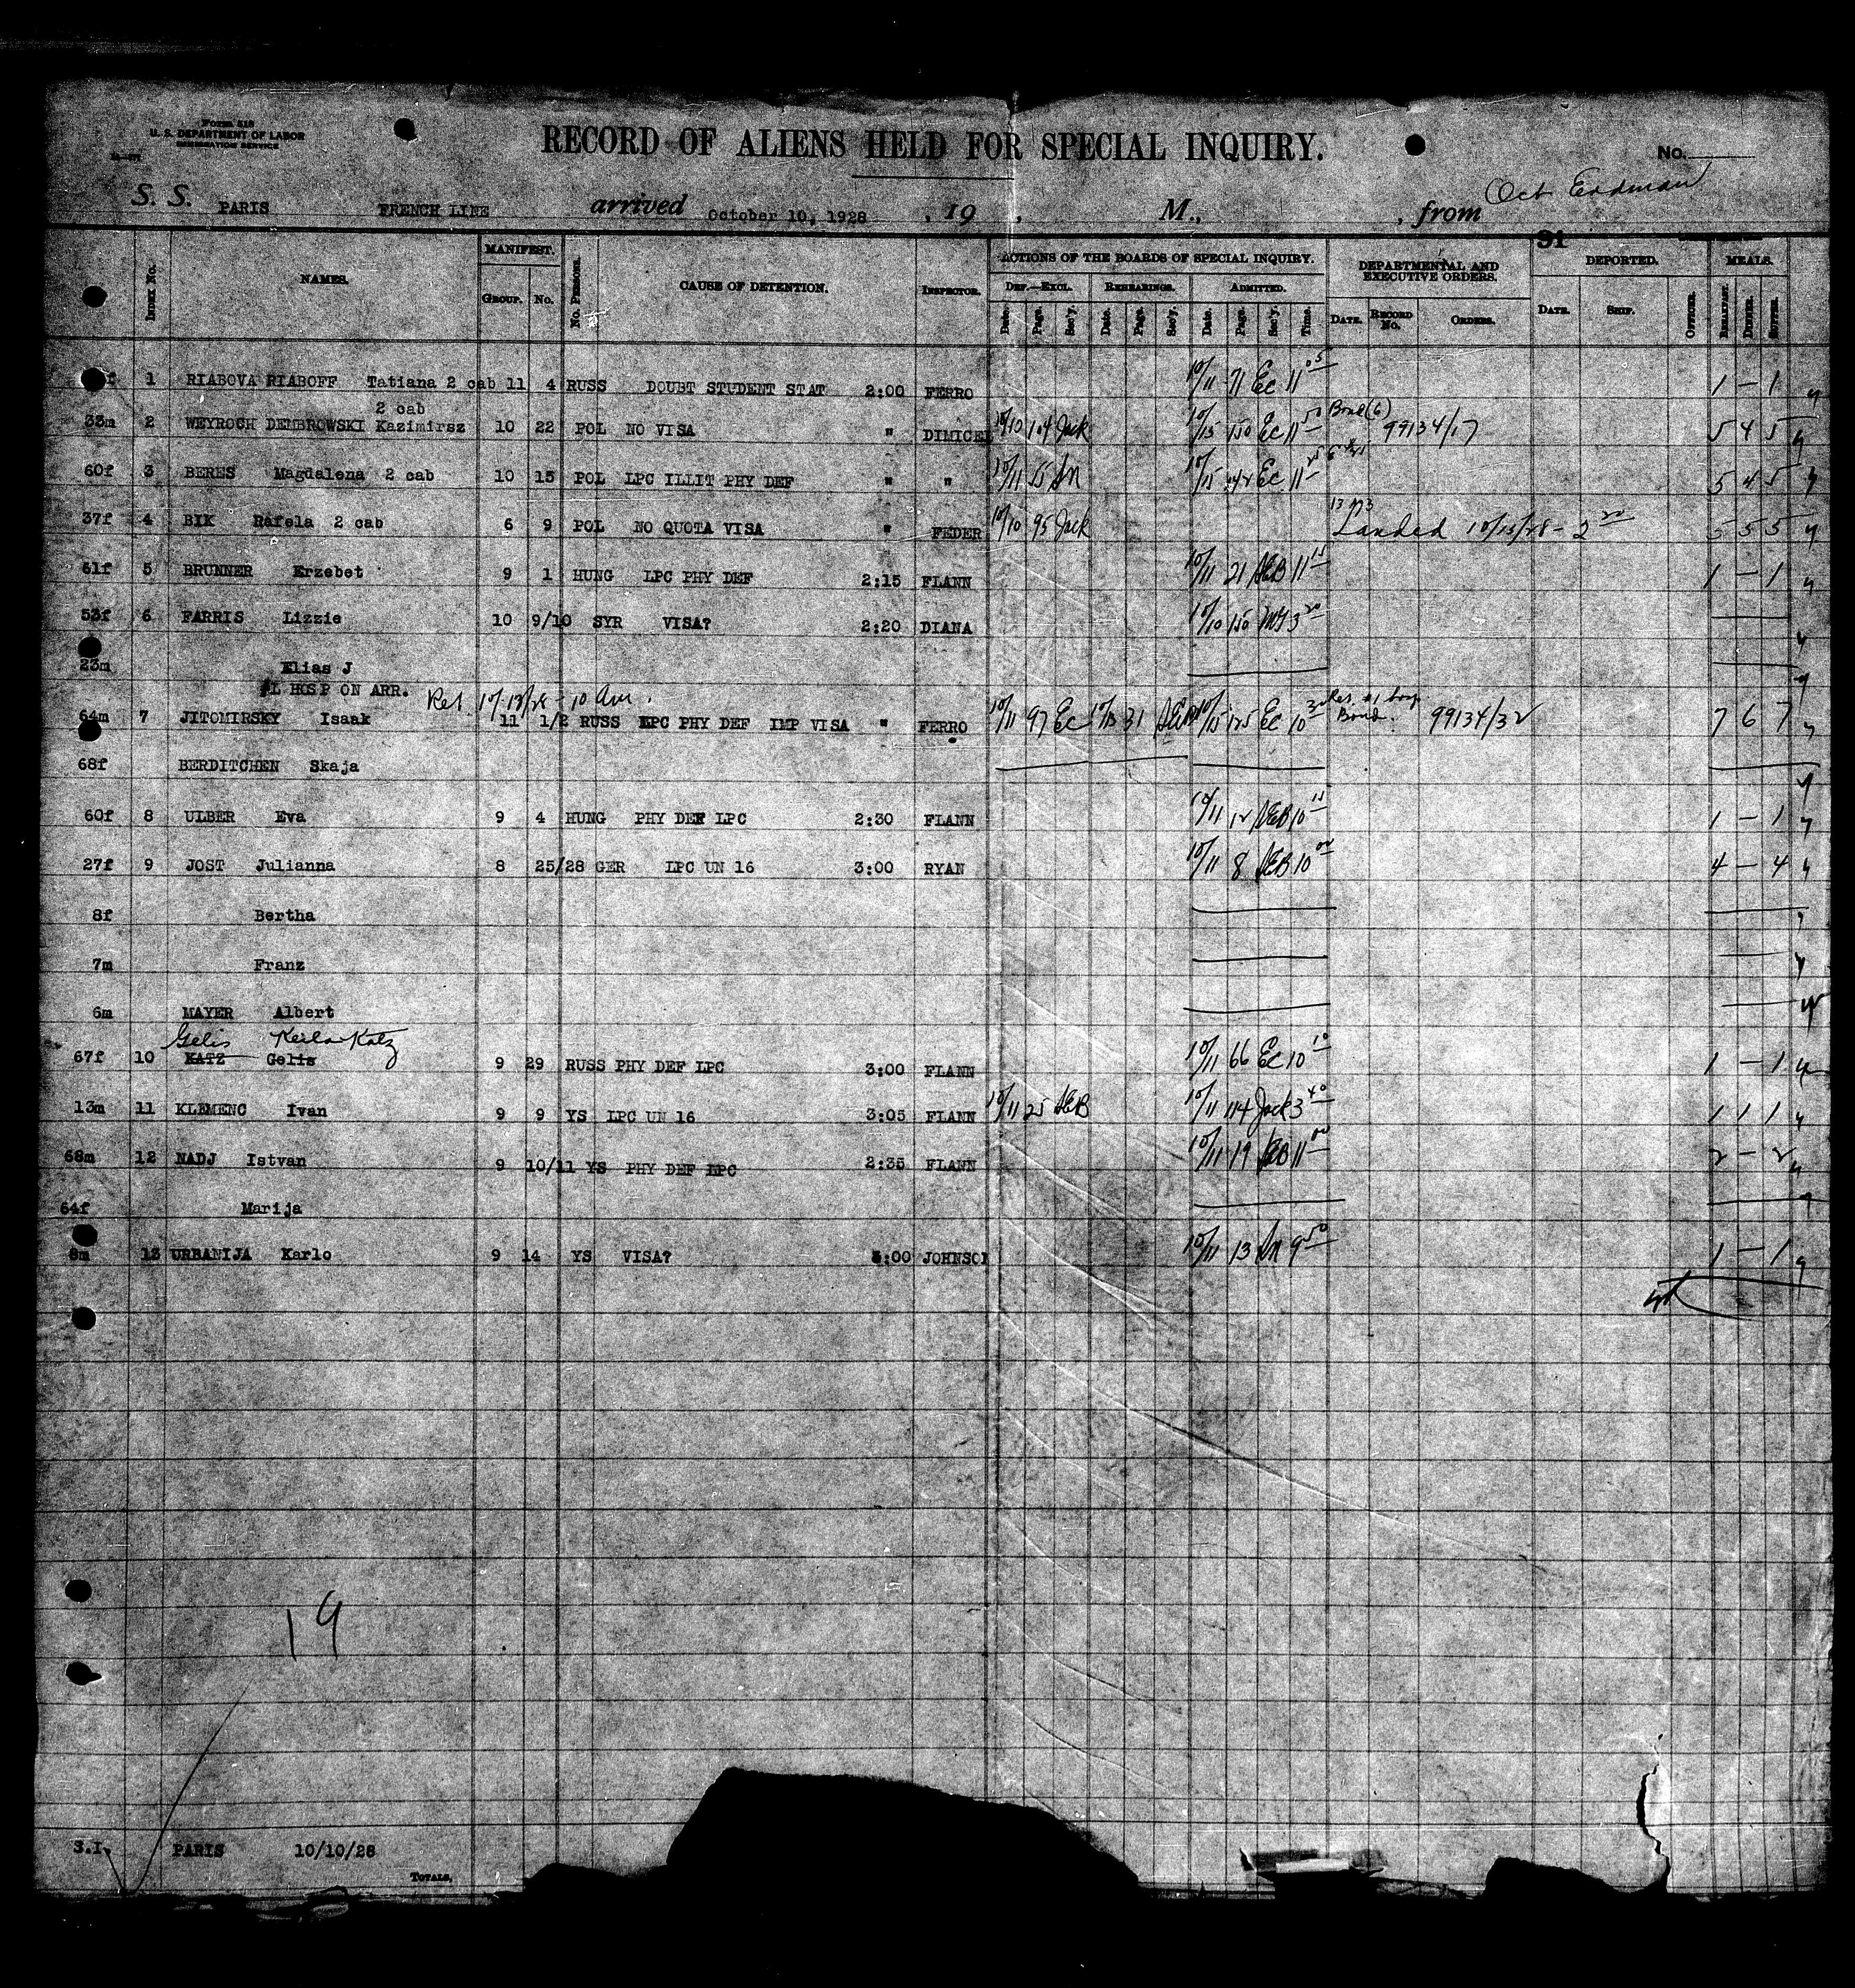 Form 518
U. S. DEPARTMENT OF LABOR
IMMIGRATION SERVICE
RECORD OF ALIENS HELD FOR SPECIAL INQUIRY.
No.
S. S. PARIS FRENCH LINE arrived October 10, 1928, 19 , M., , from Oct Erdman
91
Index No. NAMES. MANIFEST. Group. No. No. Persons. CAUSE OF DETENTION. Inspector. ACTIONS OF THE BOARDS OF SPECIAL INQUIRY. DEPARTMENTAL AND EXECUTIVE ORDERS. DEPORTED. MEALS.
Def.—Excl. Rehearings. Admitted.
Date. Page. Sec'y. Date. Page. Sec'y. Date. Page. Sec'y. Time. Date. Record No. Orders. Date. Ship. Officer. Breakfast. Dinner. Supper.
f 1 RIABOVA RIABOFF Tatiana 2 cab 11 4 RUSS DOUBT STUDENT STAT 2:00 FERRO 10/11 71 Ec 11 05 1 – 1
2 cab
33m 2 WEYROCH DEMBROWSKI Kazimirsz 10 22 POL NO VISA " DIMICEL 10/10 104 Jack 10/15 150 Ec 11 50 Bond (6) 99134/17 5 4 5
60f 3 BERES Magdalena 2 cab 10 15 POL LPC ILLIT PHY DEF " " 10/11 55 10/15 142 Ec 11 25 5 4 5
37f 4 BIK Rafela 2 cab 6 9 POL NO QUOTA VISA " FEDER 10/10 95 Jack Landed 10/15/28 – 2 20 5 5 5
61f 5 BRUNNER Erzebet 9 1 HUNG LPC PHY DEF 2:15 FLANN 10/11 21 AEB 11 15 1 – 1
53f 6 FARRIS Lizzie 10 9/10 SYR VISA? 2:20 DIANA 10/10 150 3 20
23m Elias J
HOSP ON ARR. Ret 10/13/28 – 10 Am.
64m 7 JITOMIRSKY Isaak 11 1/2 RUSS LPC PHY DEF IMP VISA " FERRO 10/11 97 Ec 10/13 31 AEB 10/15 125 Ec 10 30 Bond. 99134/32 7 6 7
68f BERDITCHEN Skaja
60f 8 ULBER Eva 9 4 HUNG PHY DEF LPC 2:30 FLANN 10/11 12 AEB 10 15 1 – 1
27f 9 JOST Julianna 8 25/28 GER LPC UN 16 3:00 RYAN 10/11 8 AEB 10 00 4 – 4
8f Bertha
7m Franz
6m MAYER Albert
Gelis Keila Katz
67f 10 KATZ Gelis 9 29 RUSS PHY DEF LPC 3:00 FLANN 10/11 66 Ec 10 10 1 – 1
13m 11 KLEMENC Ivan 9 9 YS LPC UN 16 3:05 FLANN 10/11 25 AEB 10/11 114 Jack 3 40 1 1 1
68m 12 NADJ Istvan 9 10/11 YS PHY DEF LPC 2:35 FLANN 10/11 19 AEB 11 00 2 – 2
64f Marija
8m 13 URBANIJA Karlo 9 14 YS VISA? 3:00 JOHNSON 10/11 13 9 50 1 – 1
19
S.I. PARIS 10/10/28
Totals,